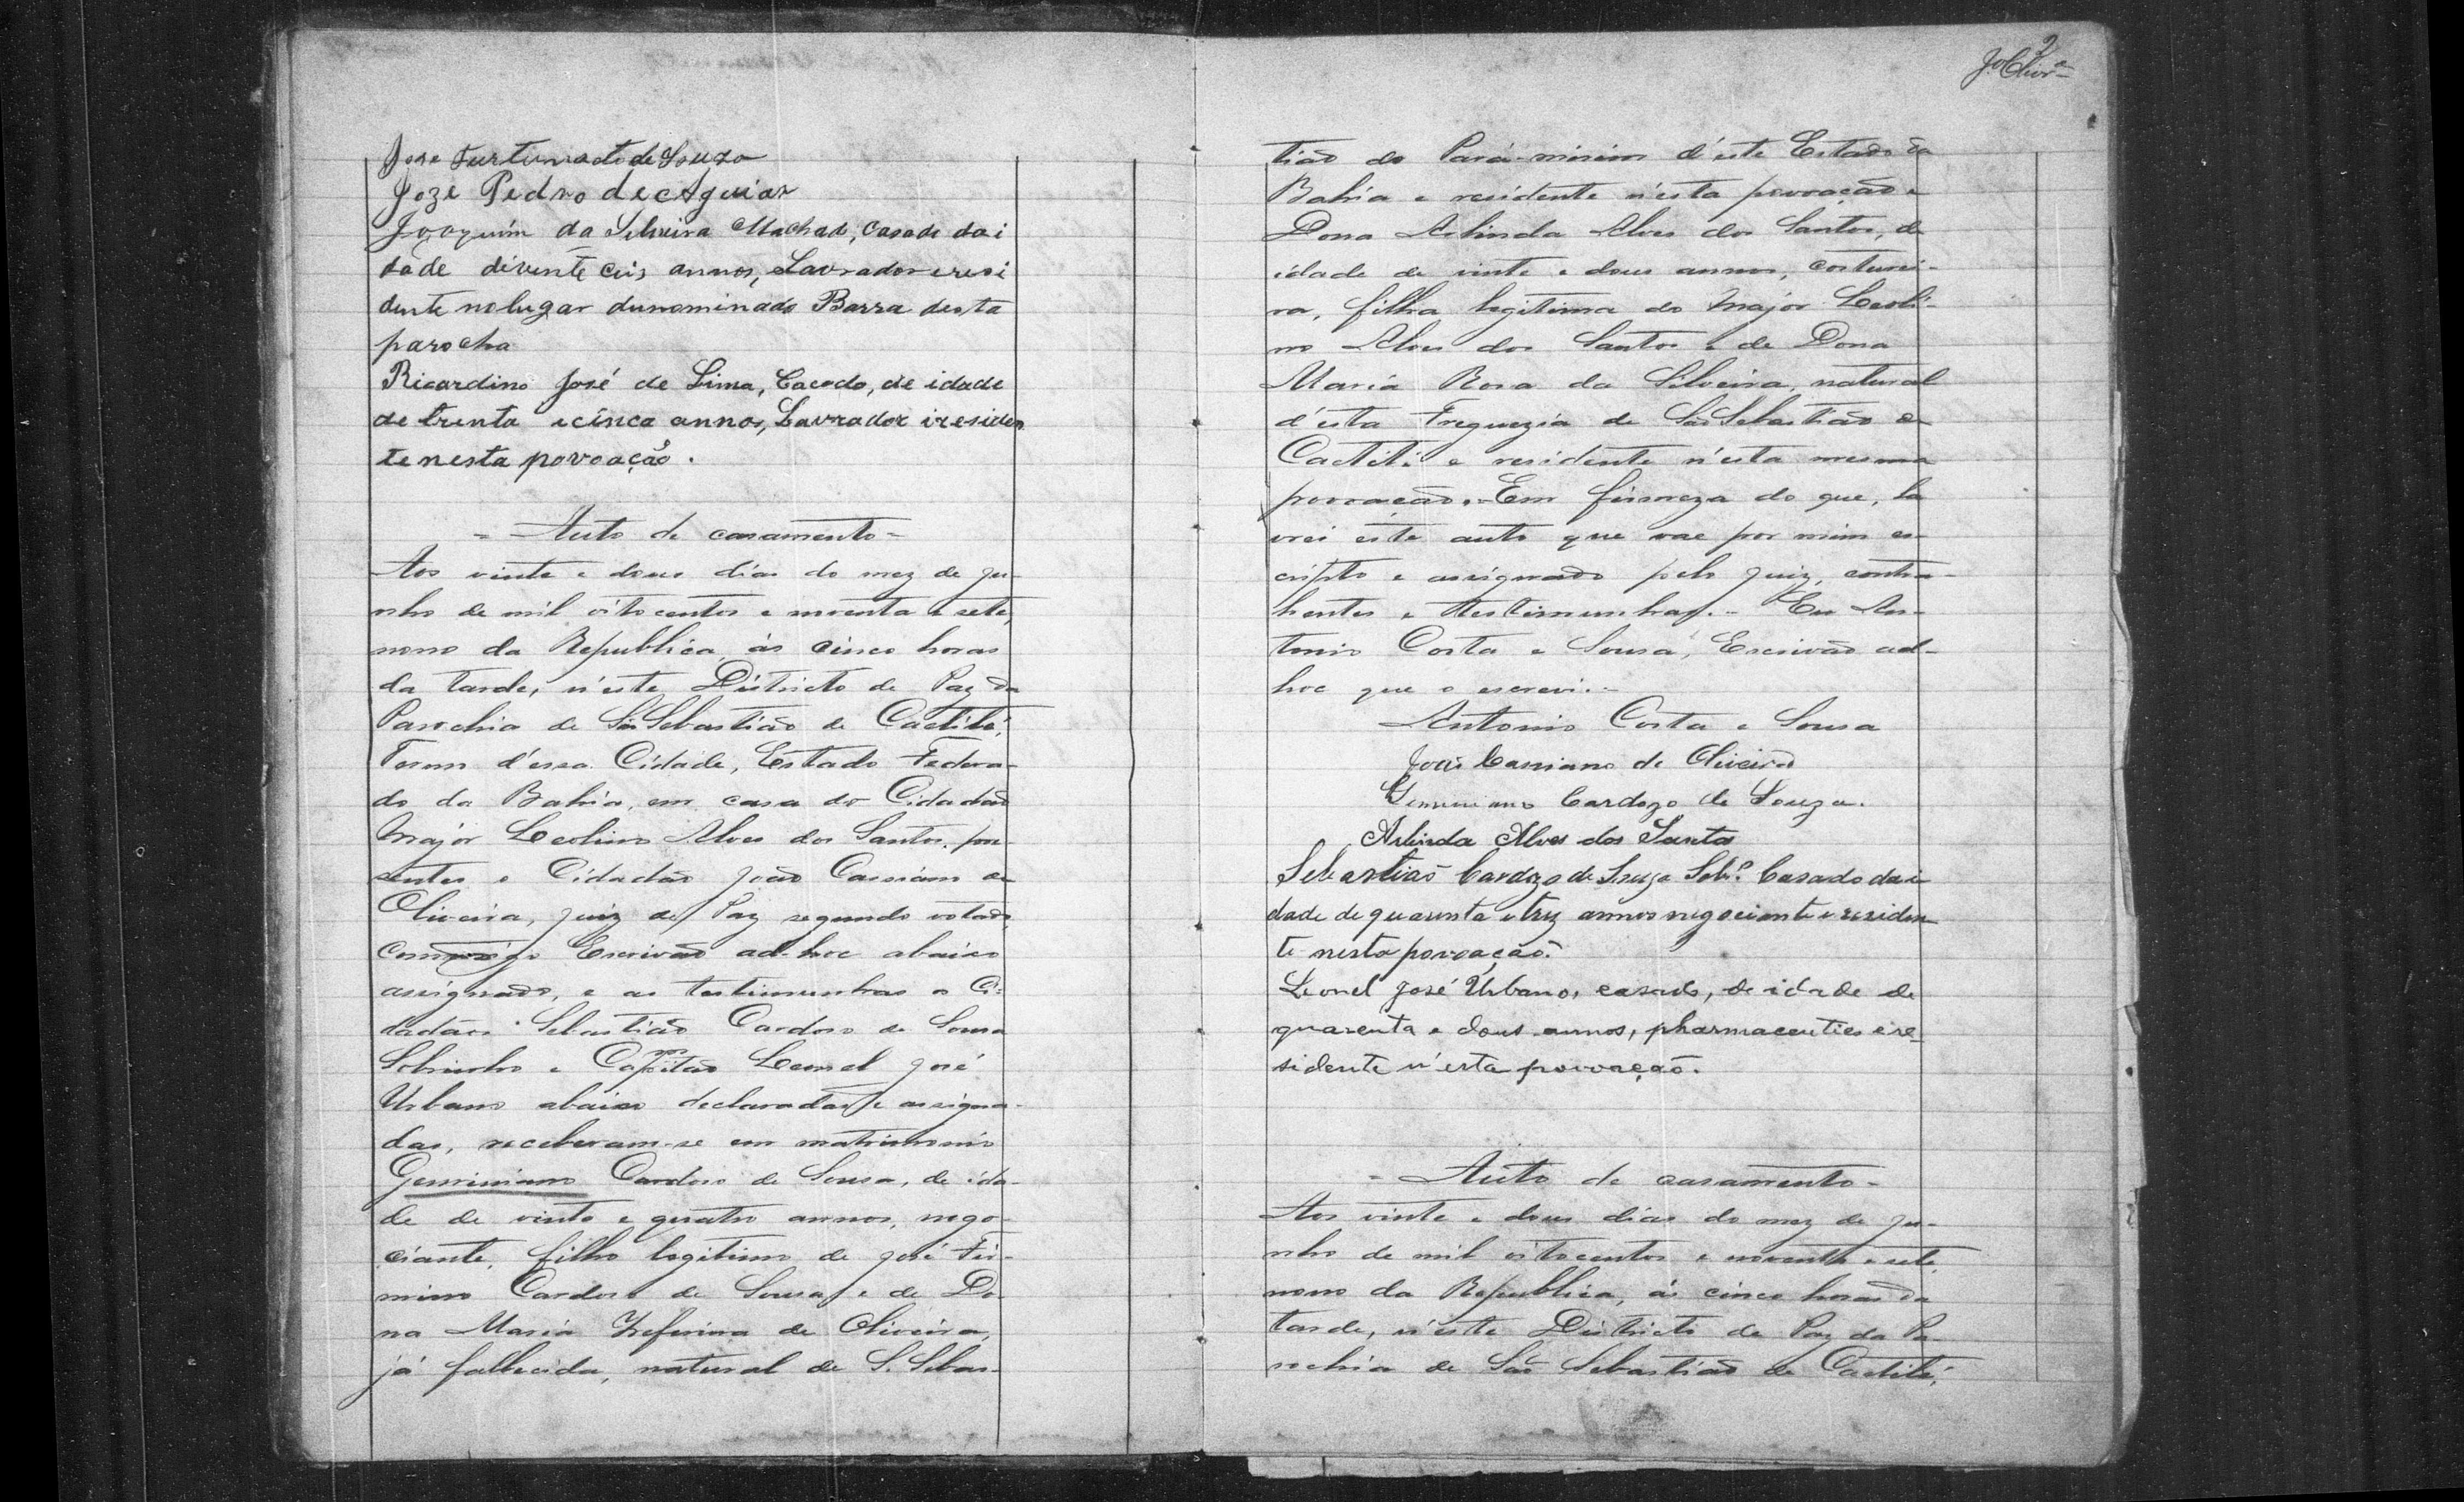 Jose Furtunato de Souza
Joze Pedro de Aguiar
Joaquim da Selveira Machado, Casado da i
dade de vente ceis annos, Lavrador e resi
dente no lugar dunominado Barra desta
parocha
Ricardino José de Lima, Cacado, de idade
de trenta e cinco annos, Lavrador i residen
te nesta povoação.
= Auto de casamento =
Aos vinte e dous dias do mez de ju-
nho de mil oitocentos e noventa e sete,
nono da Republica, ás cinco horas
da tarde, n'este Districto de Paz da
Parochia de São Sebastião de Caetité,
Termo d'essa Cidade, Estado Federa-
do da Bahia, em casa do Cidadão
Major Leolino Alves dos Santos, pre-
sentes o Cidadão João Cassiano de
Oliveira, juiz de Paz segundo votado,
commigo Escrivão ad-hoc abaixo
assignado, e as testimunhas os Ci-
dadãos Sebastião Cardoso de Sousa
Sobrinho e Capitão Leonel José
Urbano abaixo declaradas e assigna-
das, receberam-se em matrimonio
Geminiano Cardoso de Sousa, de ida-
de de vinte e quatro annos, nego-
ciante, filho legitimo de José Fir-
mino Cardoso de Sousa e de Do-
na Maria Zeferina de Oliveira,
já fallecida, natural de S. Sebas-
2
tião do Pará-mirim d'este Estado da
Bahia e residente n'esta povoação e
Dona Arlinda Alves dos Santos, de
idade de vinte e dous annos, costurei-
ra, filha legitima do Major Leoli-
no Alves dos Santos e de Dona
Maria Rosa da Silveira, natural
d'esta Freguezia de São Sebastião de
Caetité e residente n'esta mesma
povoação. Em firmeza do que, la
vrei este auto que vae por mim es-
cripto e assignado pelo juiz, contra-
hentes e testimunhas. - Eu An-
tonio Costa e Sousa, Escrivão ad-
hoc que o escrevi.
Antonio Costa e Sousa
João Cassiano de Oliveira
Geminiano Cardozo de Souza.
Arlinda Alves dos Santos
Sebastião Cardozo de Souza Sobº. Casado da i
dade de quarenta e trez annos negociante e residen
te nesta povoação.
Leonel José Urbano, casado, de idade de
quarenta e dous annos, pharmaceutico e re-
sidente n'esta povoação.
= Auto de casamento =
Aos vinte e dous dias do mez de ju-
nho de mil oitocentos e noventa e sete,
nono da Republica, ás cinco horas da
tarde, n'este Districto de Paz da Pa-
rochia de São Sebastião de Caetité,